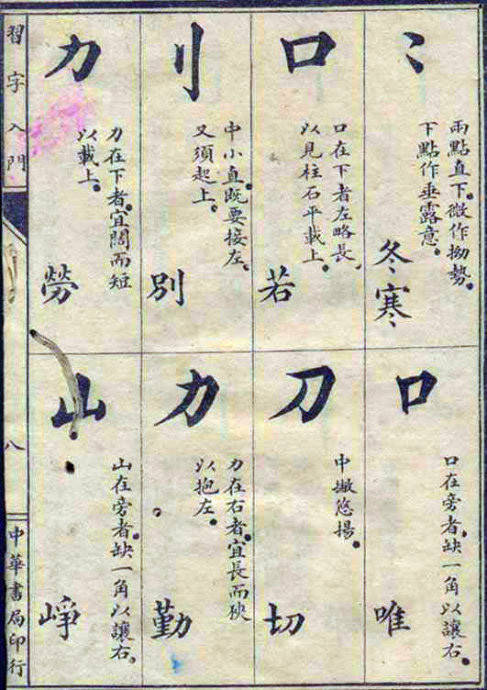 ⺀
兩點直下。微作拗勢。
下點作垂露意。
冬寒
口
口在下者左略長。
以見柱石平載上。
若
刂
中小直既要接左。
又須起上。
別
力
力在下者。宜闊而短
以載上。
勞
口
口在旁者。缺一角以讓右。
唯
刀
中撇悠揚。
切
力
力在右者。宜長而狹
以抱左。
勤
山
山在旁者。缺一角以讓右。
崢
習字入門
八
中華書局印行